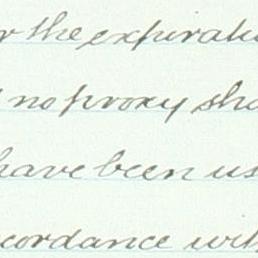 r the expiratio
no proxy sha
have been us
ccordance with